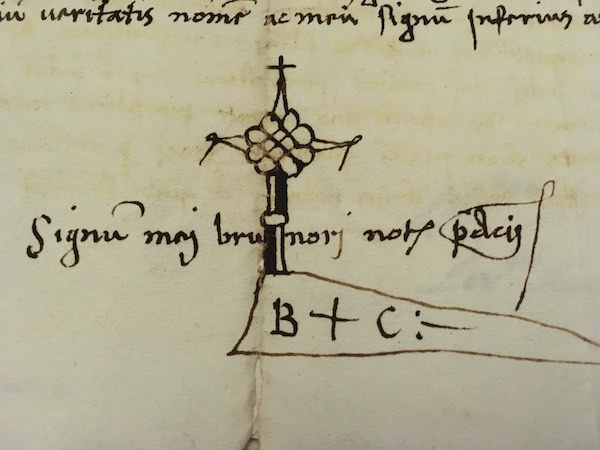 veritatis nomē ac meū signū inferius
Signū mej brunori not
B + C :